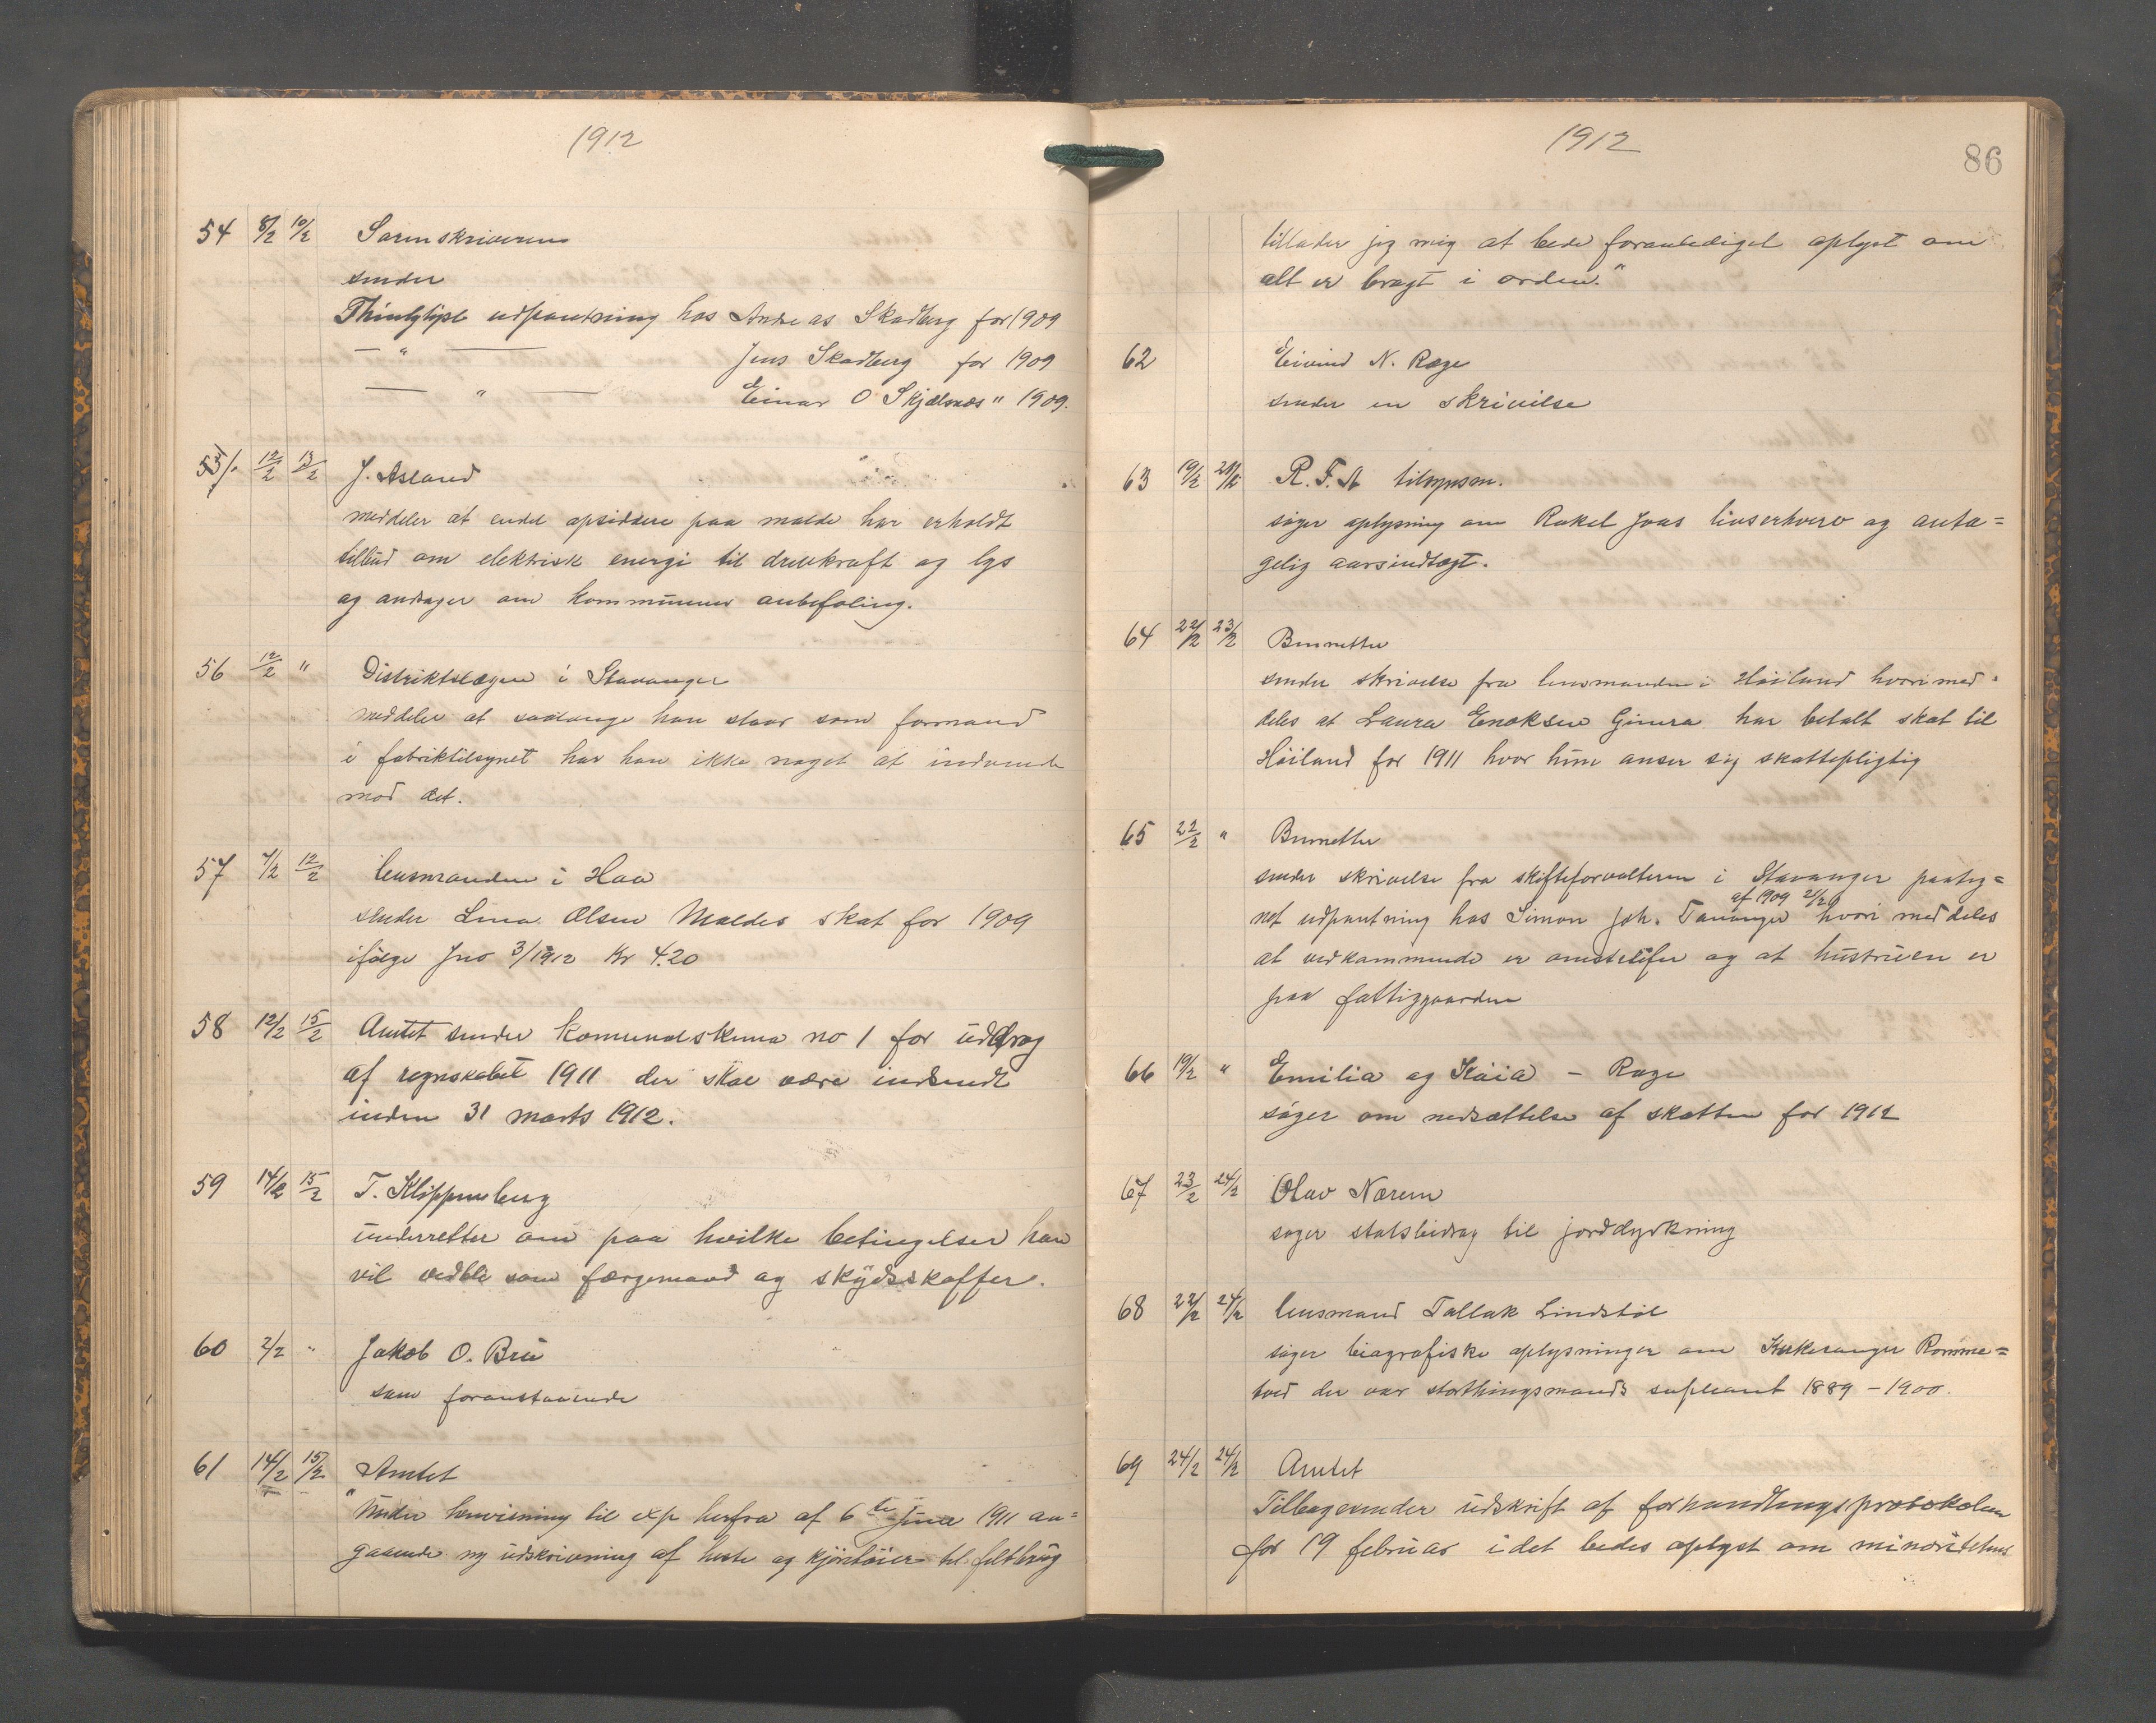 1912
54 8/2 10/2 Sorenskriveren
sender
Thinglyst udpantning hos Andreas Skadberg for 1909
— " — Jens Skadberg for 1909
— " — Einar O Skjælsnæs " 1909.
55/. 12/2 13/2 J. Asland
meddeler at endel opsiddere paa malde har erholdt
tilbud om elektrisk energi til drivkraft og lys
og andrager om kommunens anbefaling.
56 12/2 " Distriktslægen i Stavanger
meddeler at saalænge han staar som formand
i fabriktilsynet har han ikke noget at indvende
mod det.
57 7/2 12/2 lensmanden i Haa
sender Lina Olsen Maldes skat for 1909
ifølge Jno 3/1912 Kr 4.20
58 12/2 15/2 Amtet sender komunalskema no 1 for uddrag
af regnskabet 1911 der skal være indsendt
inden 31 marts 1912.
59 14/2 15/2 T. Klippenberg
underretter om paa hvilke betingelser han
vil vedbli som færgemand og skydsskaffer.
60 2/2 " Jakob O. Bru
som foranstaaende
61 14/2 15/2 Amtet
"Under henvisning til exp herfra af 6te June 1911 an=
gaaende ny udskrivning af heste og kjøretøier til feltbrug
1912
86
tillader jeg mig at bede foranlediget oplyst om
alt er bragt i orden."
62 Eivind N. Ræge
sender en skrivilse
63 19/2 21/2 R. F. A tilsynsm.
søger oplysning om Rakel Joas livserhverv og anta=
gelig aarsindtægt.
64 22/2 23/2 Brunettee
sender skrivelse fra lensmanden i Høiland hvori med=
deles at Laura Enoksen Gimra har betalt skat til
Høiland for 1911 hvor hun anser sig skattepligtig
65 22/2 " Brunettee
sender skrivelse fra skifteforvalteren i Stavanger paateg=
af 1909 2/2
net udpantning hos Simon Joh. Tananger hvori meddeles
at vedkommende er og at hustruen er
paa fattiggaarden
66 19/2 " Emilia og Kaia – Ræge
søger om nedsættelse af skatten for 1912
67 23/2 24/2 Olav Nærem
søger statsbidrag til jorddyrkning
68 22/2 24/2 lensmand Tallak Lindstøl
søger biografiske oplysninger om Kirkesanger Romme=
tved der var storthingsmands supleant 1889 – 1900.
69 24/2 24/2 Amtet
Tilbagesender udskrift af forhandlingsprotokolen
for 19 februar idet bedes oplyst om minoritetens